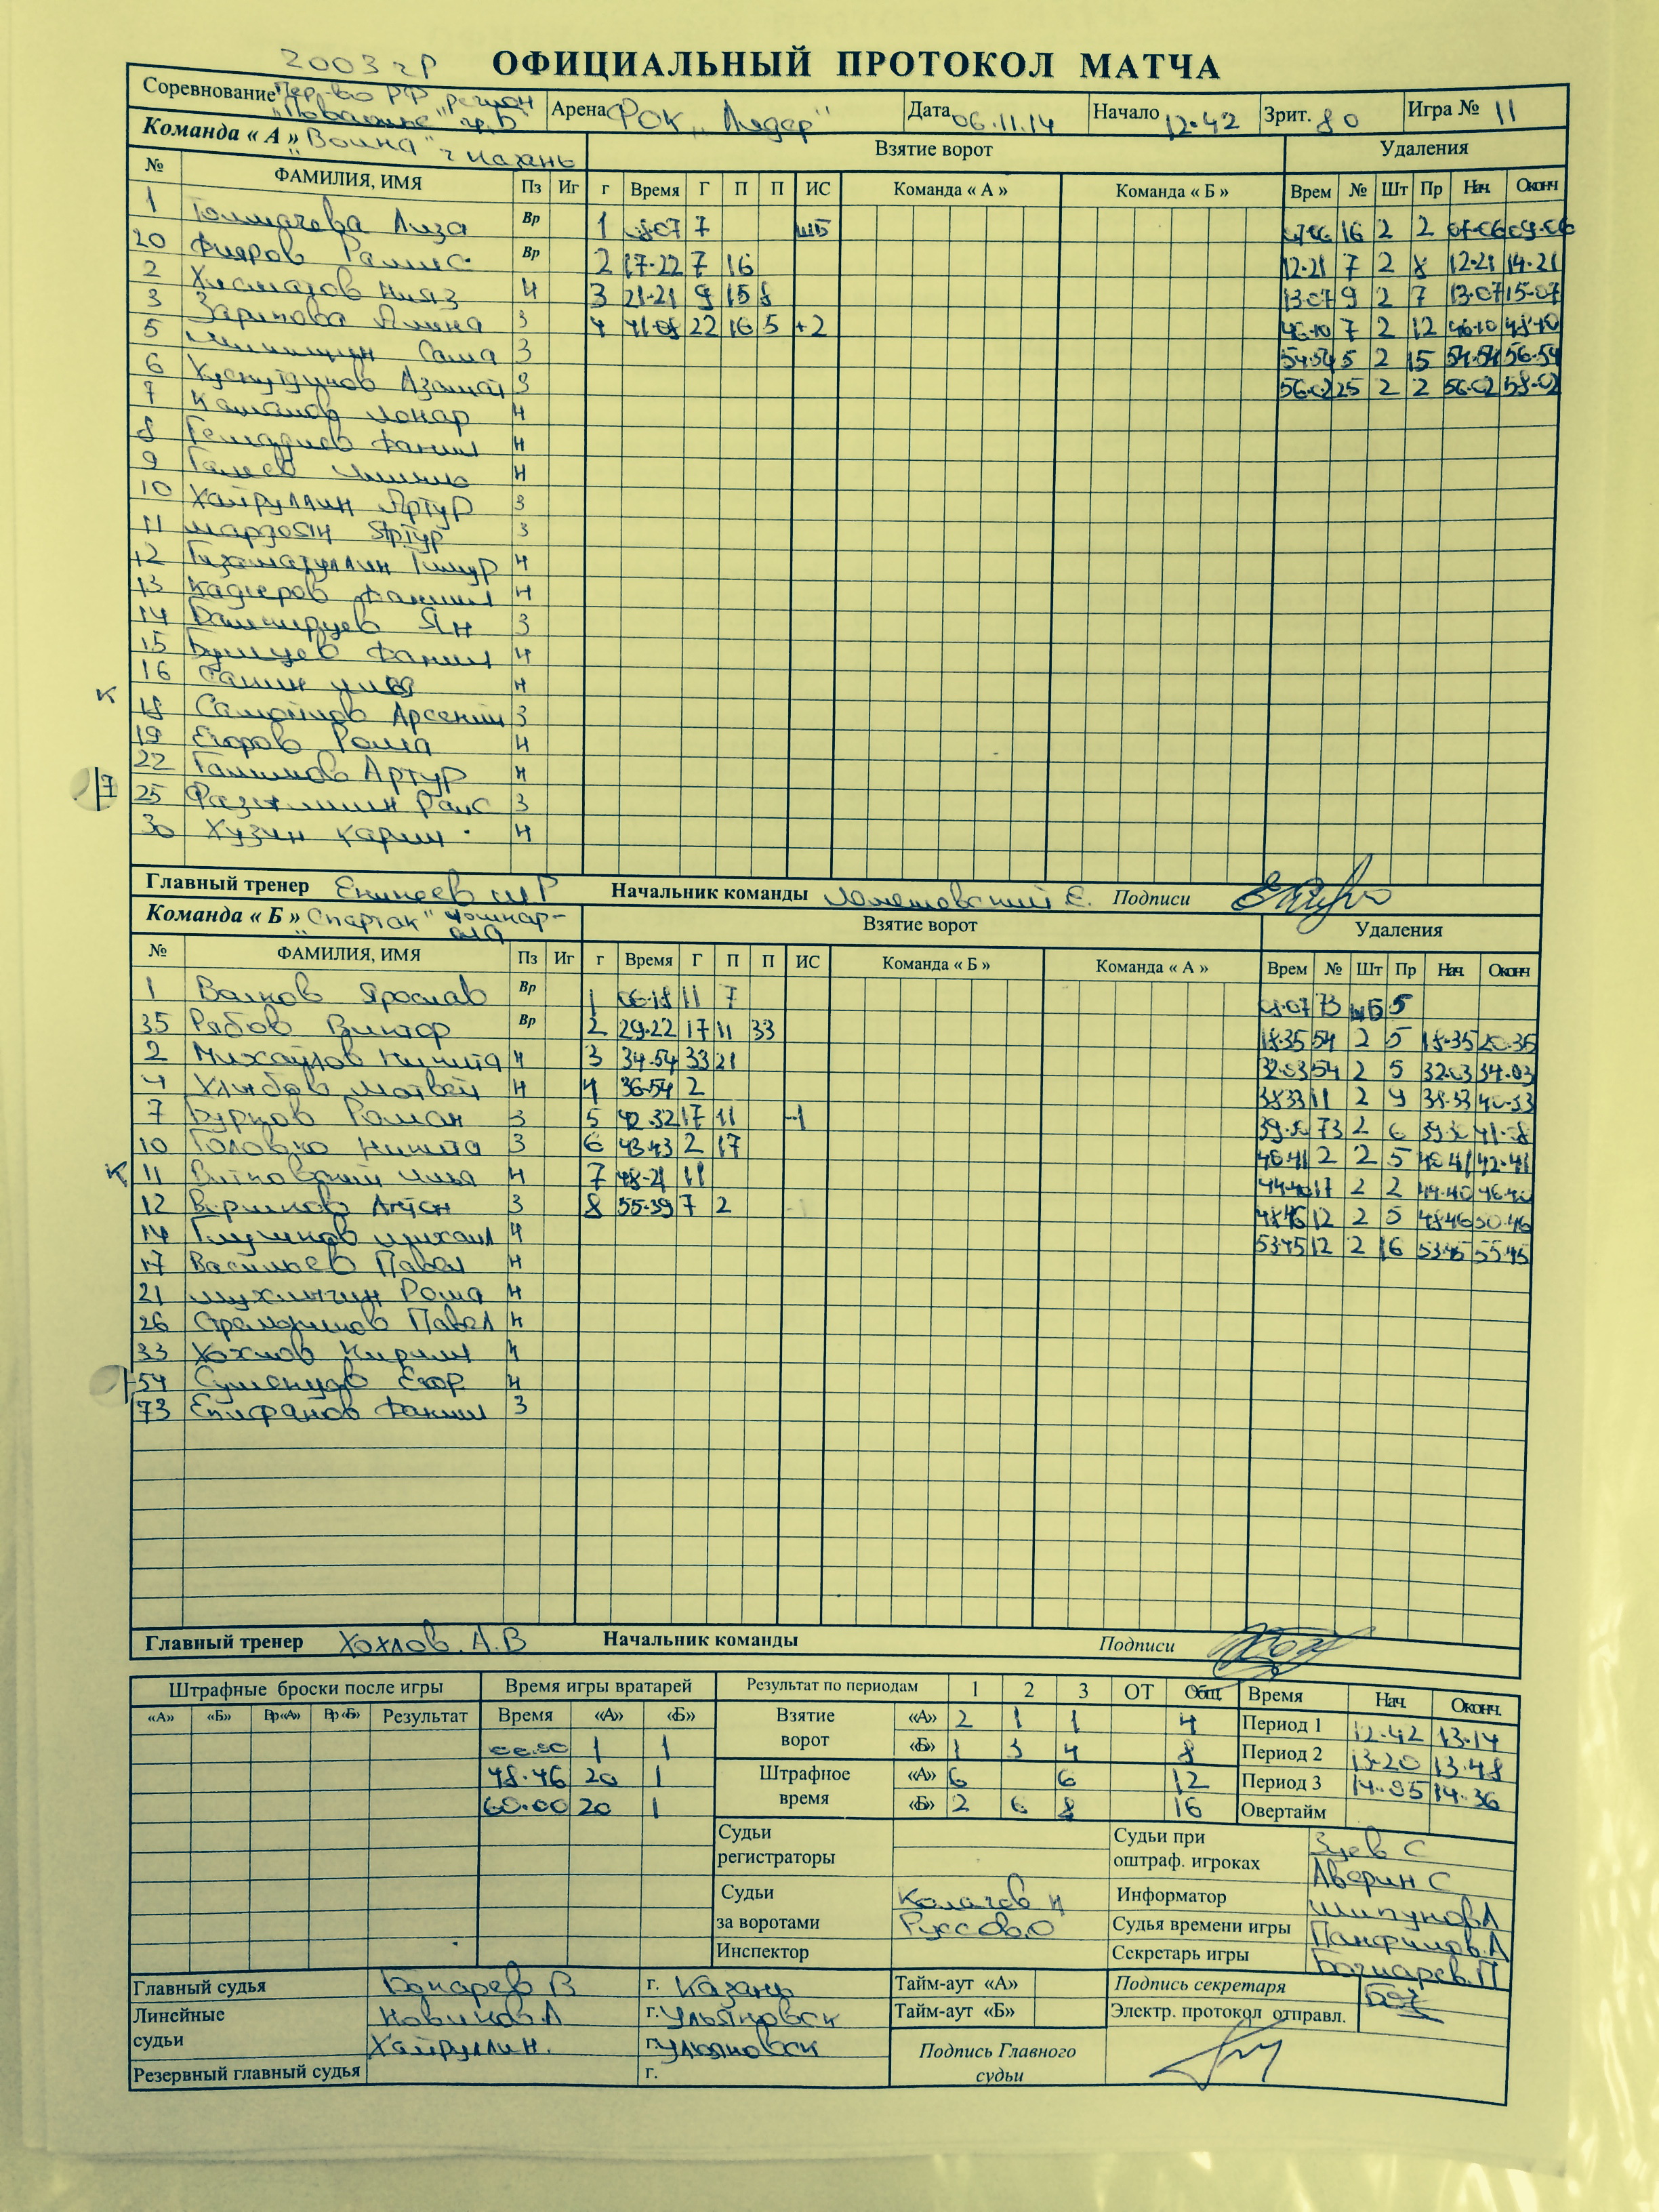 2003 г.р
ОФИЦИАЛЬНЫЙ ПРОТОКОЛ МАТЧА
Соревнование Пер-во РФ регион Арена ФОК "Лидер" Дата 06.11.14 Начало 12.42 Зрит. 80 Игра № 11
Команда « А » "Волна" г Казань Взятие ворот Удаления
№ ФАМИЛИЯ, ИМЯ Пз Иг г Время Г П П ИС Команда « А » Команда « Б » Врем № Шт Пр Нач. Оконч
1 Толмачева Лиза Вр 1 08.07 7 шБ 07.06 16 2 2 07.06 09.06
20 Рамис Вр 2 17.22 7 16 12.21 7 2 8 12.21 14.21
2 Нияз Н 3 21.21 9 15 8 13.07 9 2 7 13.07 15.07
3 Зарипова Амина З 4 41.08 22 16 5 +2 46.10 7 2 12 46.10 48.10
5 Саша З 54.54 5 2 15 54.54 56.54
6 Хуснутдинов Азамат З 56.02 25 2 2 56.02 58.02
7 Камалов Н
8 Данил Н
9 Галеев Н
10 Хайруллин Артур З
11 Марзоян Артур З
12 Гизатуллин Тимур Н
13 Кадыров Данил Н
14 Башкирцев Ян З
15 Данил Н
к 16 Н
18 Самойлов Арсений З
19 Егоров Рома Н
22 Галимов Артур Н
25 Раис З
30 Хузин Карим Н
Главный тренер Еникеев Начальник команды Е. Подписи
Команда « Б » "Спартак" Йошкар-Ола Взятие ворот Удаления
№ ФАМИЛИЯ, ИМЯ Пз Иг г Время Г П П ИС Команда « Б » Команда « А » Врем № Шт Пр Нач. Оконч
1 Волков Ярослав Вр 1 06.18 11 7 08.07 73 шБ 5
35 Рябов Виктор Вр 2 29.22 17 11 33 18.35 54 2 5 18.35 20.35
2 Михайлов Никита Н 3 34.54 33 21 32.03 54 2 5 32.03 34.03
4 Хлыбов Матвей Н 4 36.54 2 38.33 11 2 9 38.33 40.33
7 Бурков Роман З 5 42.32 17 11 -1 73 2 6
10 Головко Никита З 6 43.43 2 17 40.41 2 2 5 40.41 42.41
к 11 Витковский Илья Н 7 48.21 11 44.40 17 2 2 44.40 46.40
12 Антон З 8 55.39 7 2 48.46 12 2 5 48.46 50.46
14 Глушков Михаил Н 53.45 12 2 16 53.45 55.45
17 Васильев Павел Н
21 Рома Н
26 Павел Н
33 Хохлов Кирилл Н
54 Егор Н
73 Епифанов Данил З
Главный тренер Хохлов. А.В Начальник команды Подписи
Штрафные броски после игры Время игры вратарей Результат по периодам 1 2 3 ОТ Общ. Время Нач. Оконч.
«А» «Б» Вр«А» Вр«Б» Результат Время «А» «Б» Взятие ворот «А» 2 1 1 4 Период 1 12.42 13.14
00.00 1 1 «Б» 1 3 4 8 Период 2 13.20 13.48
48.46 20 1 Штрафное время «А» 6 6 12 Период 3 14.36
60.00 20 1 «Б» 2 6 8 16 Овертайм
Судьи регистраторы Судьи при оштраф. игроках Зуев С
Аверин С
Судьи за воротами Калачев Н Информатор Шипунов А
Руссов.О Судья времени игры Панфилов.А
Инспектор Секретарь игры Бочкарев.П
Главный судья Бокарев В г. Казань Тайм-аут «А» Подпись секретаря
Линейные судьи Новиков.А г. Ульяновск Тайм-аут «Б» Электр. протокол отправл.
Хайруллин. г. Ульяновск Подпись Главного судьи
Резервный главный судья г.